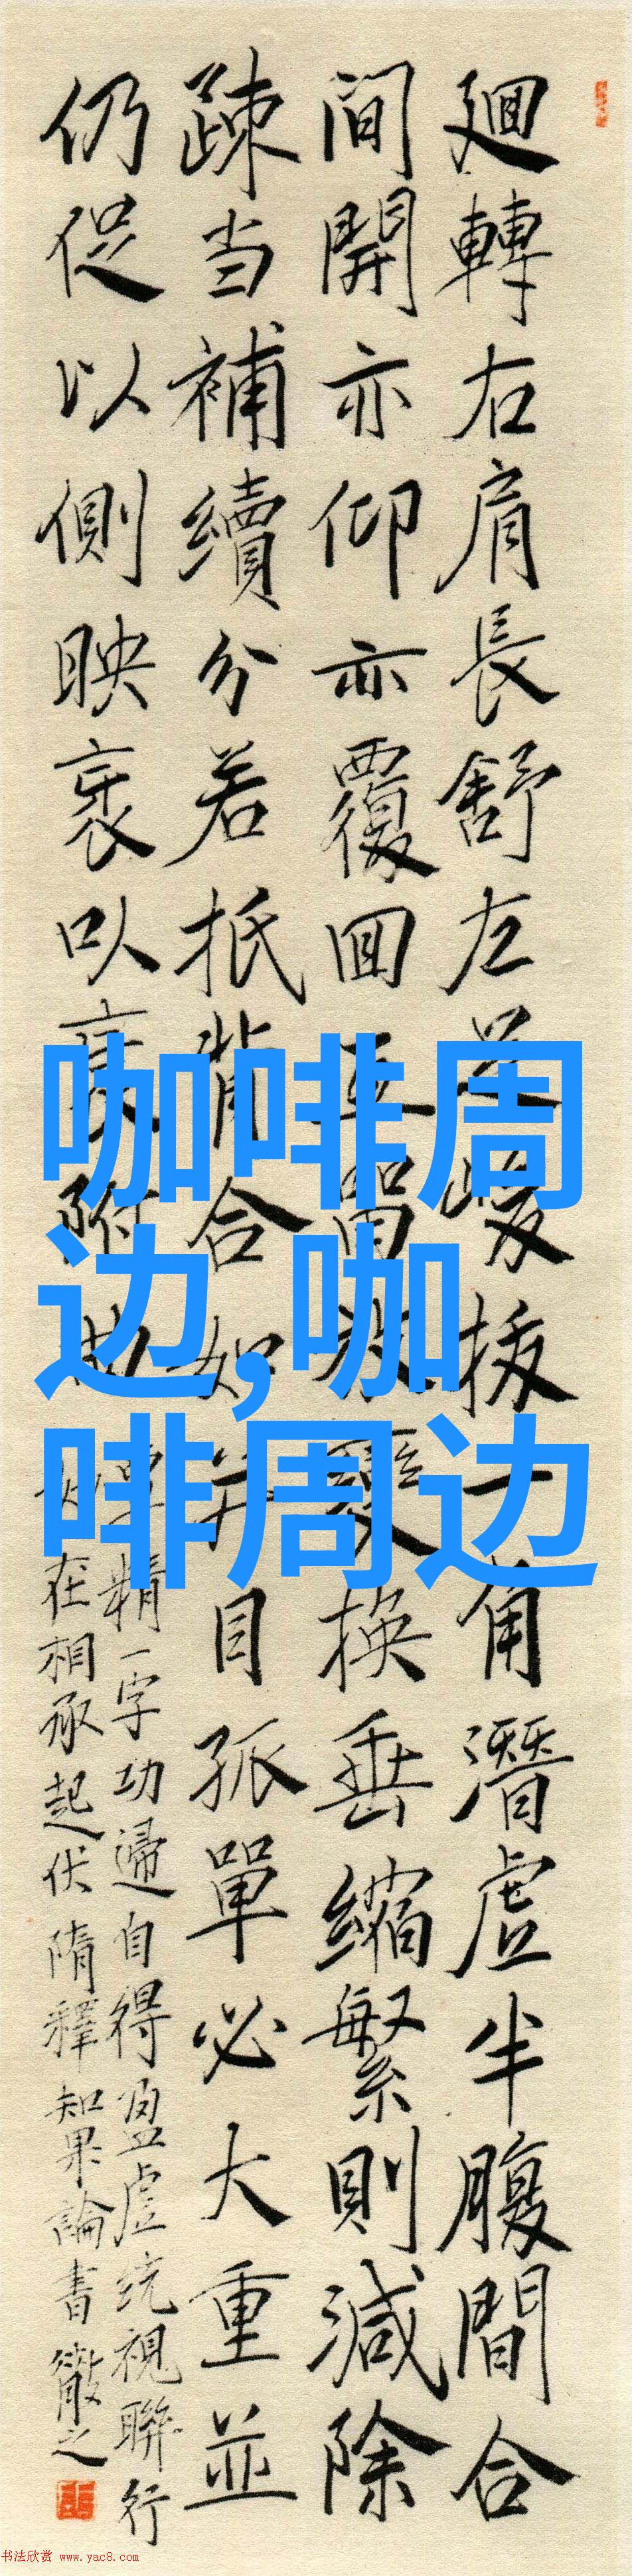 迴轉右肩長舒左峻拔一角潛虛半腹間合
間開亦仰亦覆回互留放變換垂縮繁則減除
疎当補續分若抵背合如目孤單必大重並
仍促以側映衺以衺附曲
覃精一字功歸自得盈虛統視聯行
妙在相承起伏隋釋知果論書散之
咖啡周
边,咖
啡周边
书法欣赏 www.yac8.com